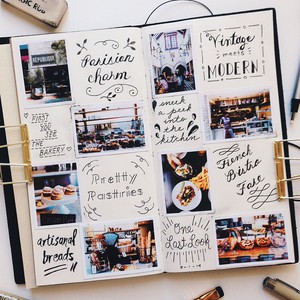 MAGIC RUB
RÉPUBLIQUE
Parisian
charm
Vintage
meets
MODERN
FIRST
YOU
SEE
THE
BAKERY
sneek a
peek
into
the
kitchen
Pretty
Pastries
French
Bistro
Fare
artisanal
breads
One
Last Look